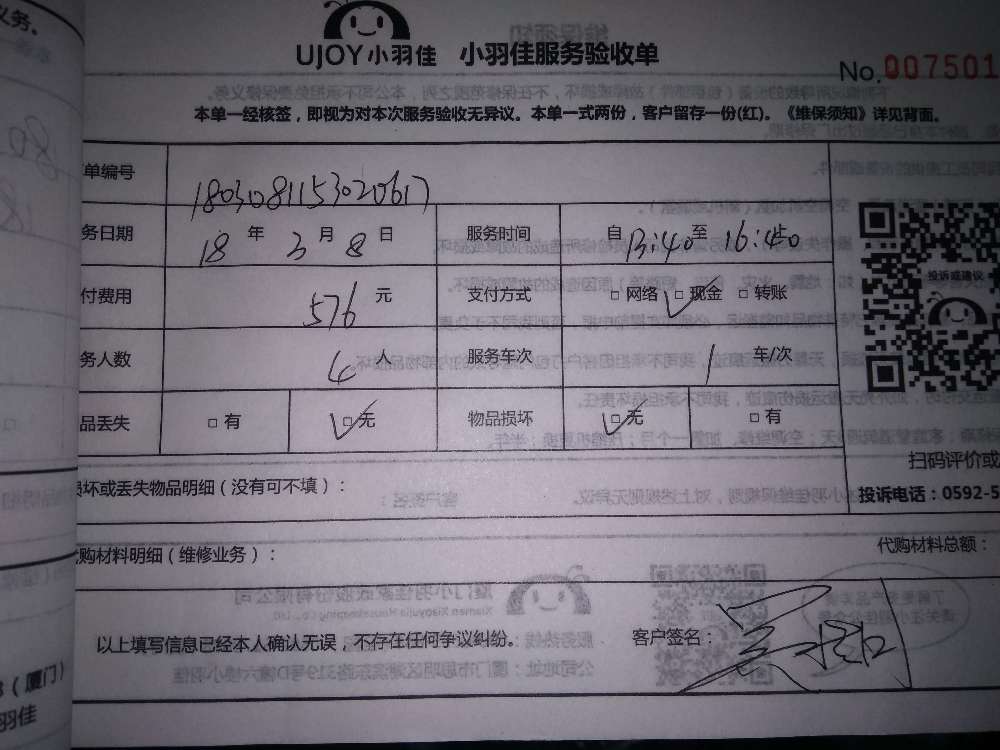 UJOY小羽佳 小羽佳服务验收单
No.007501
本单一经核签，即视为对本次服务验收无异议。本单一式两份，客户留存一份(红)。《维保须知》详见背面。
单编号 1803081153020617
务日期 18 年 3 月 8 日 服务时间 自 13:40 至 16:40
付费用 576 元 支付方式 □ 网络 □ 现金 □ 转账
务人数 4 人 服务车次 1 车/次
品丢失 □ 有 □ 无 物品损坏 □ 无 □ 有
投诉或建议
扫码评价或
投诉电话：0592-5
损坏或丢失物品明细（没有可不填）：
代购材料明细（维修业务）： 代购材料总额：
以上填写信息已经本人确认无误，不存在任何争议纠纷。 客户签名：
义务。
（厦门）
羽佳